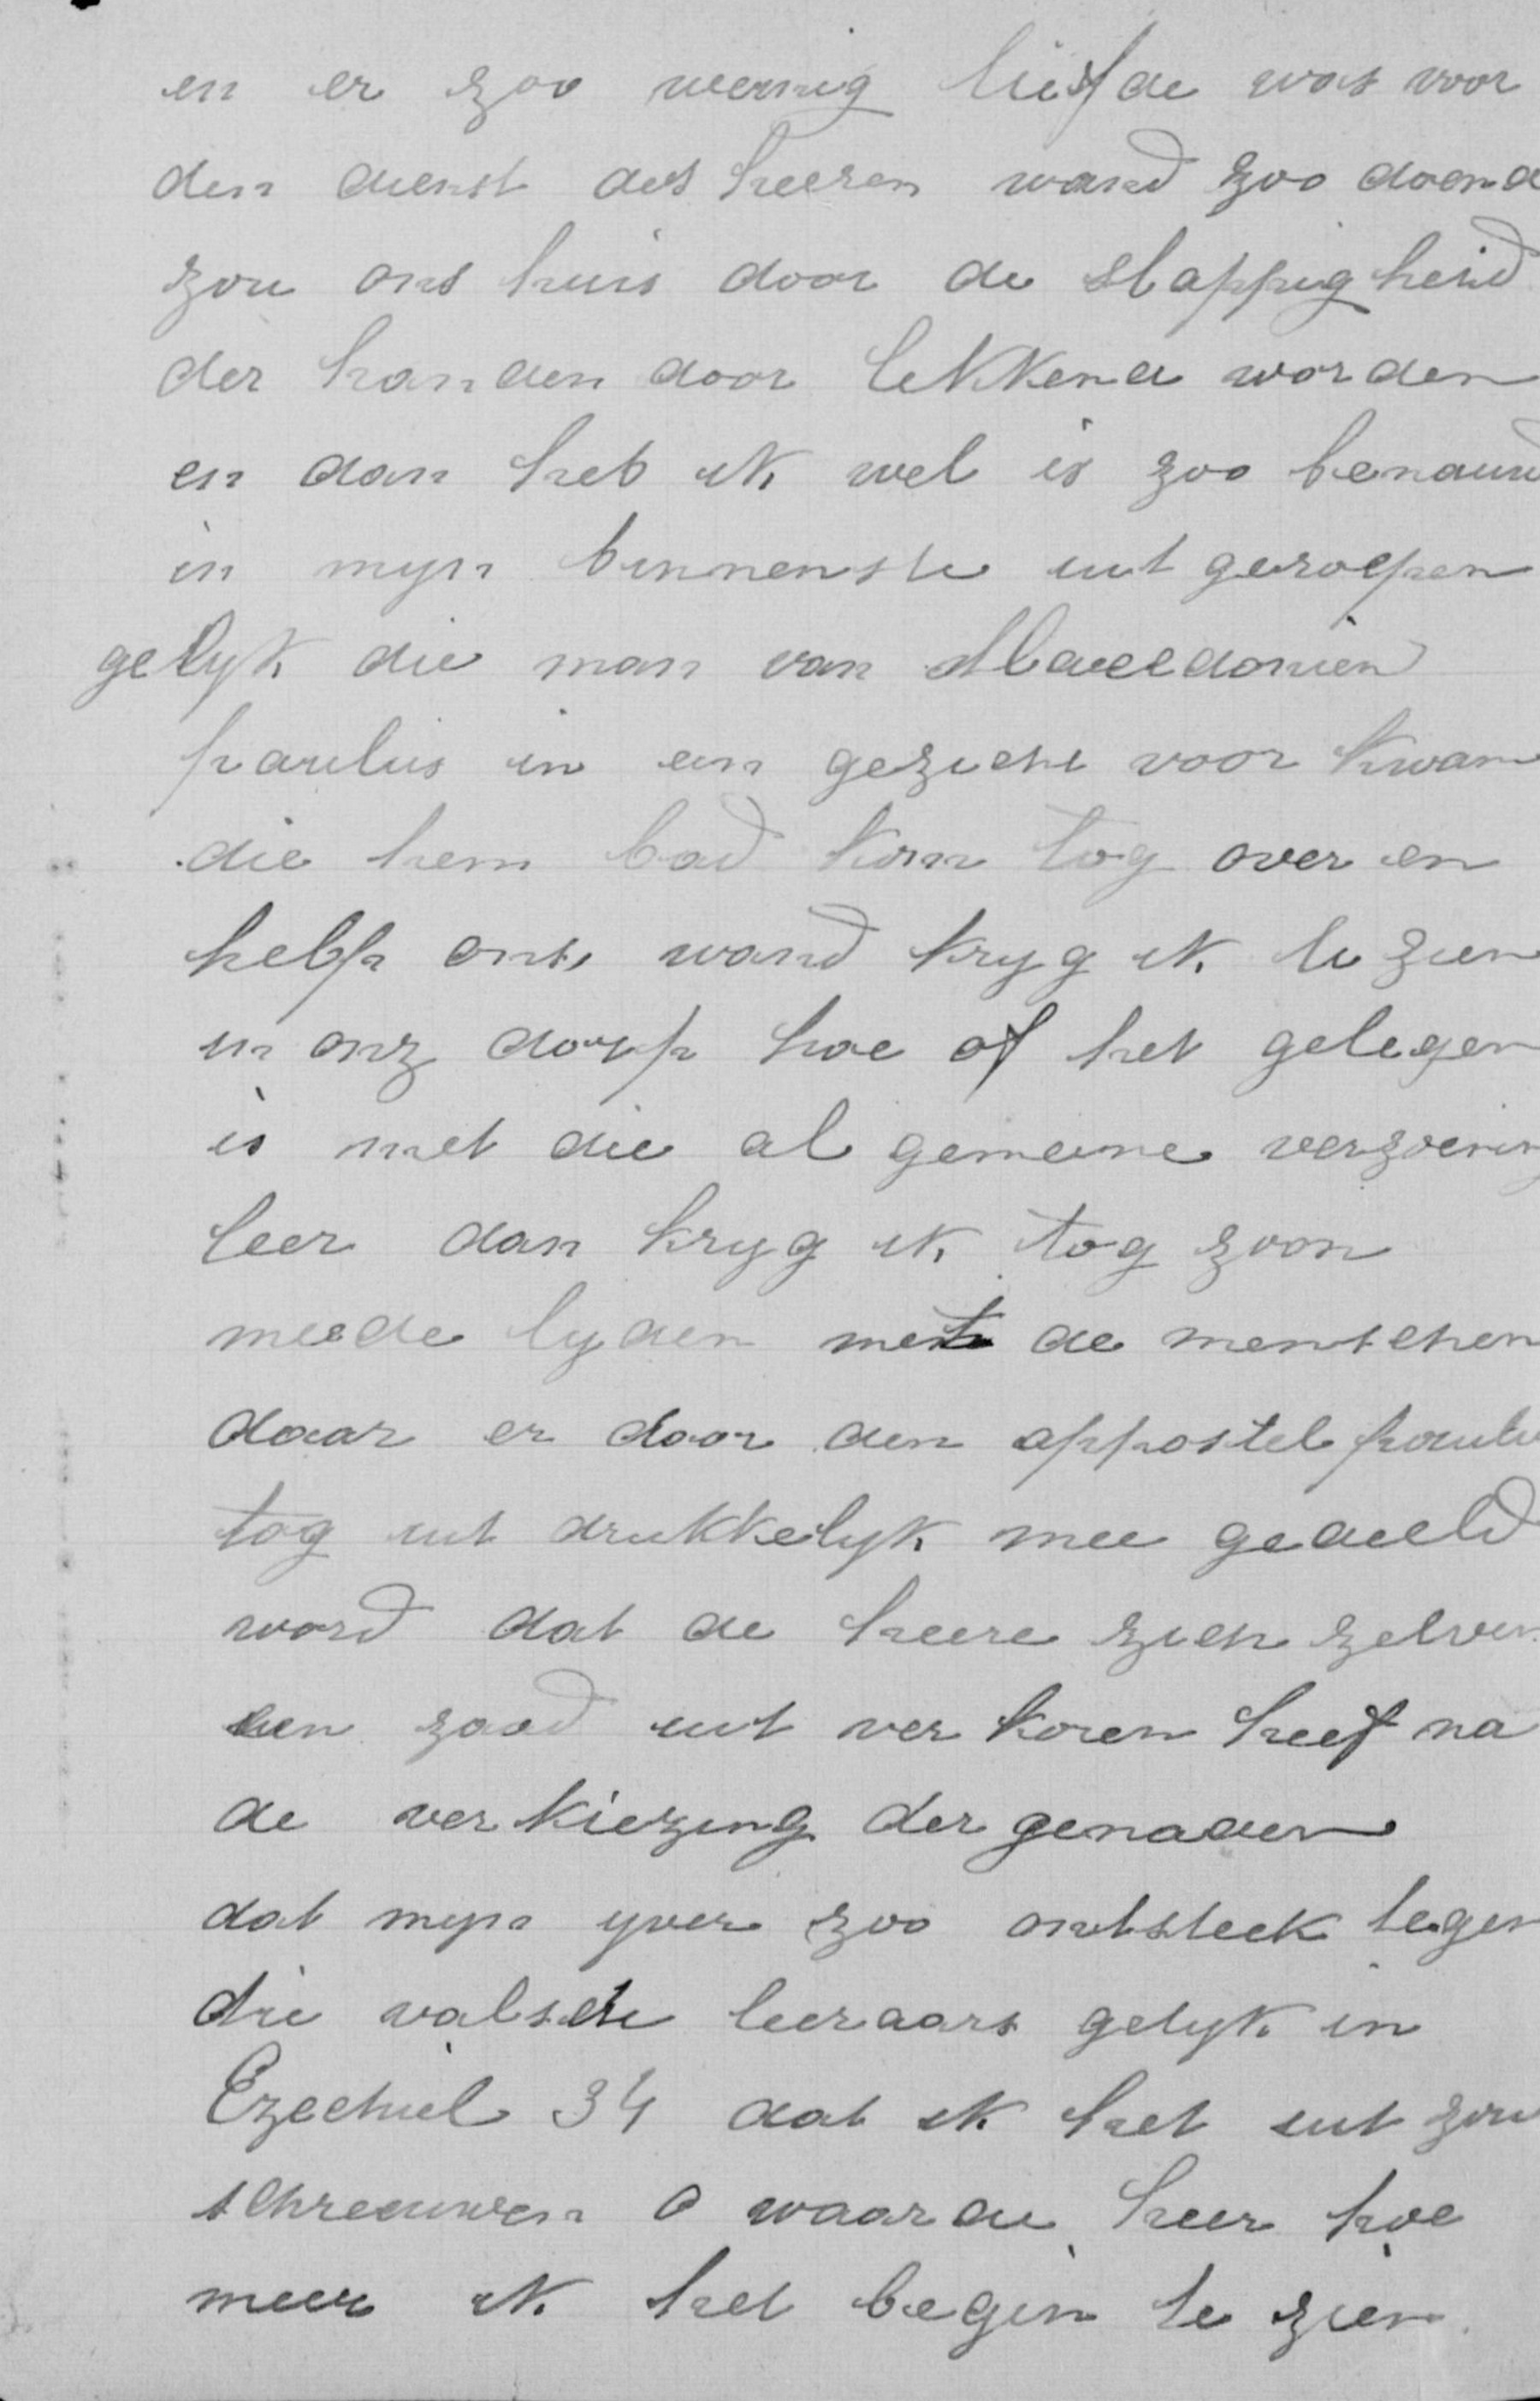 en er zoo weinig liefde was voor
den dienst des heeren wand zoo doend
zou ons huis door de slappigheid
der handen door lekkende worden
en dan heb ik wel is zoo benauwd
in myn binnenste uit geroepen
gelyk die man van Maceedonien
paulus in een gezicht voor kwam
die hem bad kom tog over en
help ons wand kryg ik te zien
in onz dorp hoe of het gelegen
is met die al gemeene verzoening
leer dan kryg ik tog zoon
meede lyden met de menschen
daar er door den appostel paulu
tog uit drukkelyk mee gedeeld
word dat de heere zich zelven
een zaad uit ver koren heef na
de ver kiezing der genaden
dat myn yver zoo ontsteek tegen
die valsche leeraars gelyk in
Ezechiel 34 dat ik het uit zou
schreeuwen o waarde heer hoe
meer ik het begin te zien